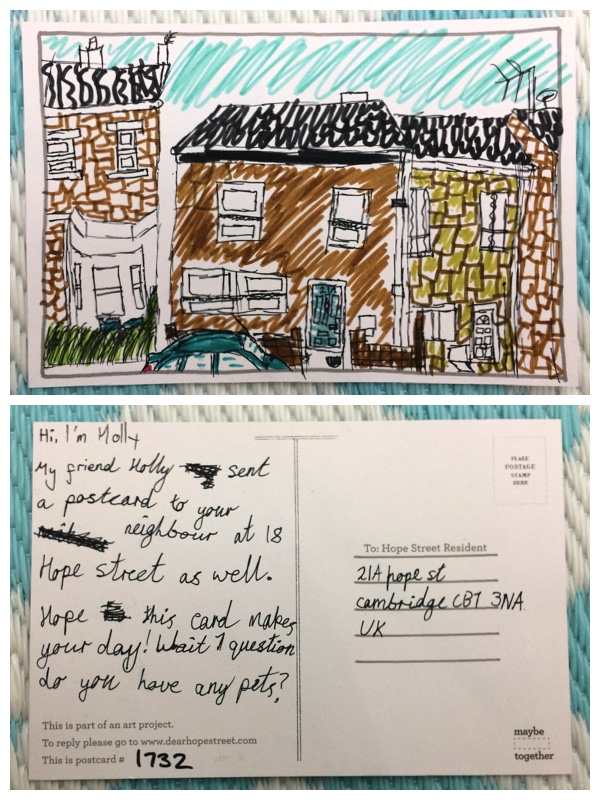 Hi, I'm Molly
My friend Holly sent
a postcard to your
neighbour at 18
Hope street as well.
Hope this card makes
your day! Wait 1 question
do you have any pets?
This is part of an art project.
To reply please go to www.dearhopestreet.com
This is postcard # 1732
PLACE
POSTAGE
STAMP
HERE
To: Hope Street Resident
21A hope st
cambridge CB1 3NA
UK
maybe
together